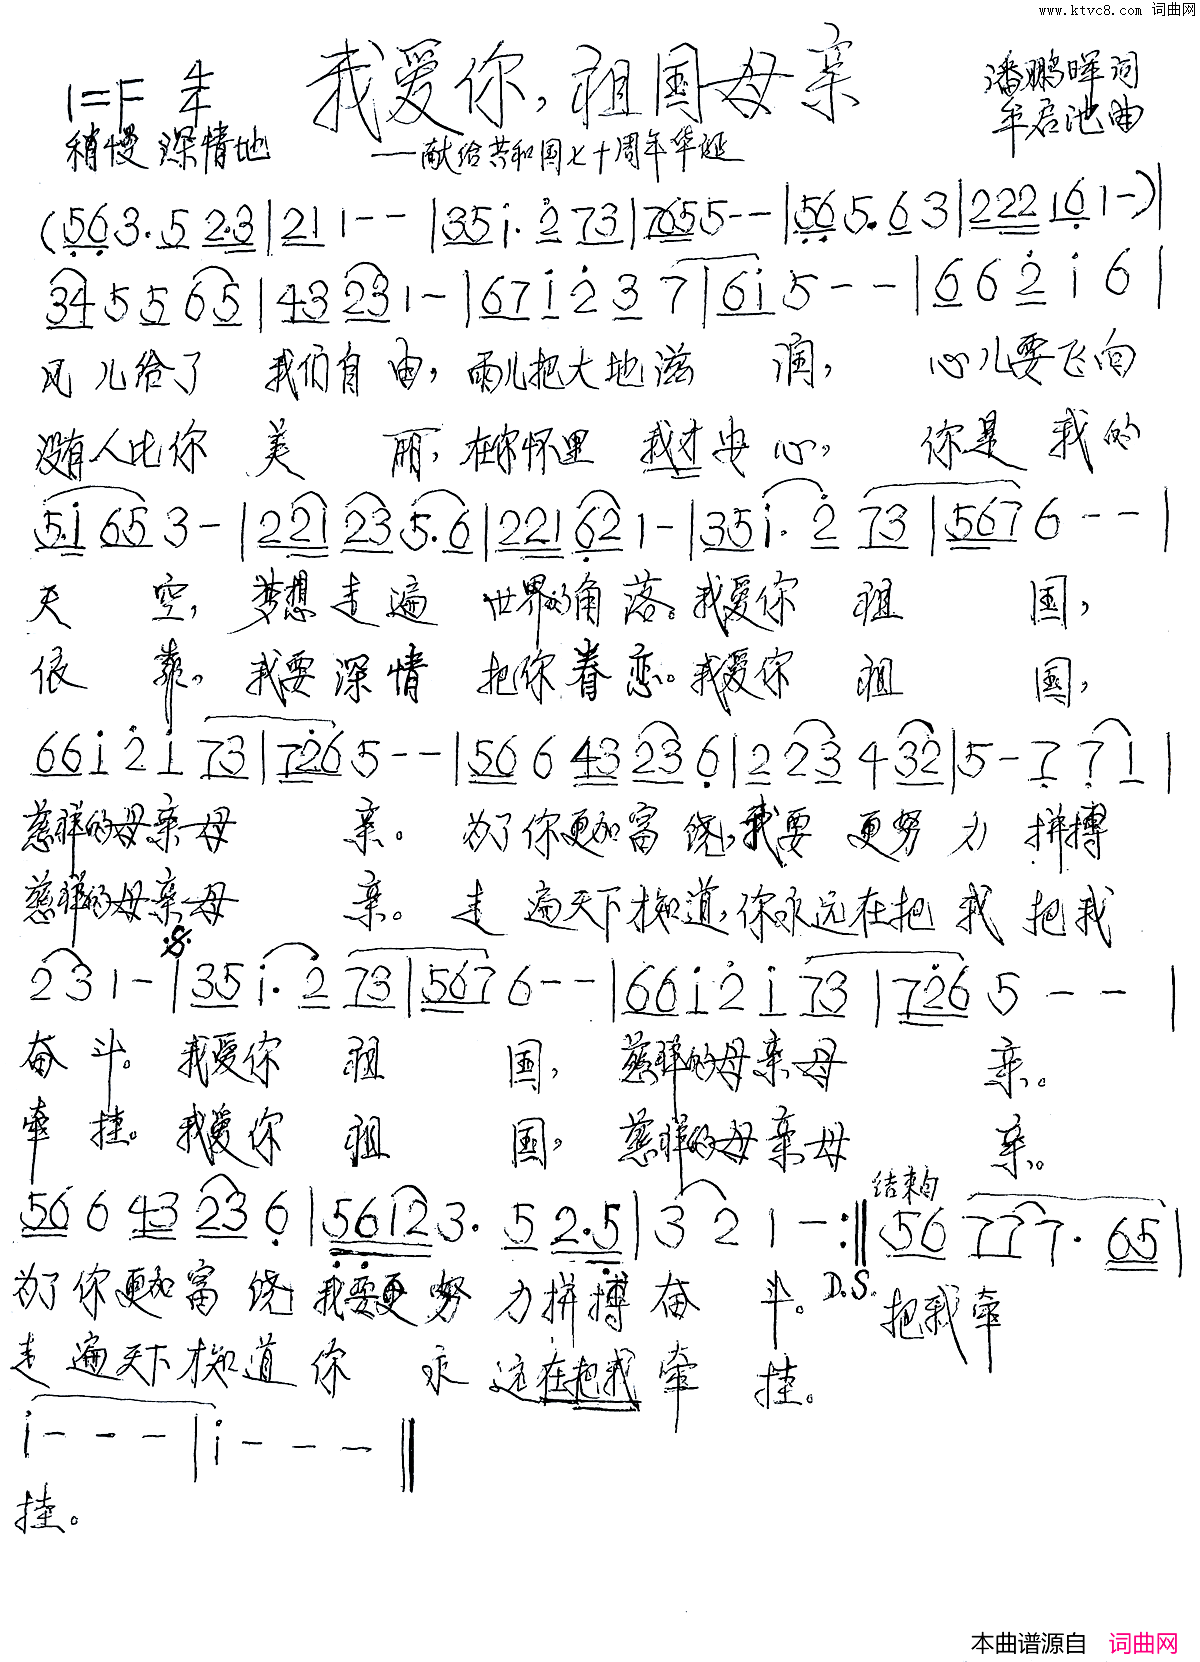 www.ktvc8.com 词曲网
我爱你,祖国母亲
1=F 4/4
潘鹏晖词
牟启池曲
稍慢 深情地
——献给共和国七十周年华诞
(5 6 3. 5 2. 3 | 2 1 1 - - | 3 5 i. 2 7 3 | 7 6 5 5 - - | 5 6 5. 6 3 | 2 2 2 1 6 1 -) |
3 4 5 5 6 5 | 4 3 2 3 1 - | 6 7 i 2 3 7 | 6 i 5 - - | 6 6 2 i 6 |
风儿给了 我们自由, 雨儿把大地滋 润, 心儿要飞向
没有人比你 美 丽, 在你怀里 我才安心, 你是 我的
5. i 6 5 3 - | 2 2 1 2 3 5. 6 | 2 2 1 6 2 1 - | 3 5 i. 2 7 3 | 5 6 7 6 - - |
天 空, 梦想走遍 世界的角落。我爱你 祖 国,
依 靠, 我要深情 把你眷恋。我爱你 祖 国,
6 6 i 2 i 7 3 | 7 2 6 5 - - | 5 6 6 4 3 2 3 6 | 2 2 3 4 3 2 | 5 - 7 7 1 |
慈祥的母亲母 亲。 为了你更加富饶,我要 更努力 拼搏
慈祥的母亲母 亲。 走 遍天下才知道,你永远在把 我 把我
2 3 1 - | 3 5 i. 2 7 3 | 5 6 7 6 - - | 6 6 i 2 i 7 3 | 7 2 6 5 - - |
奋 斗。 我爱你 祖 国, 慈祥的母亲母 亲。
牵 挂。 我爱你 祖 国, 慈祥的母亲母 亲。
结束句
5 6 6 4 3 2 3 6 | 5 6 1 2 3. 5 2. 5 | 3 2 1 - :‖ 5 6 7 7 7. 6 5 |
为了你更加富 饶 我要更努 力拼搏奋 斗。 D.S. 把我牵
走 遍天下才知道你 永 远在把我牵 挂。
i - - - | i - - - ‖
挂。
本曲谱源自 词曲网